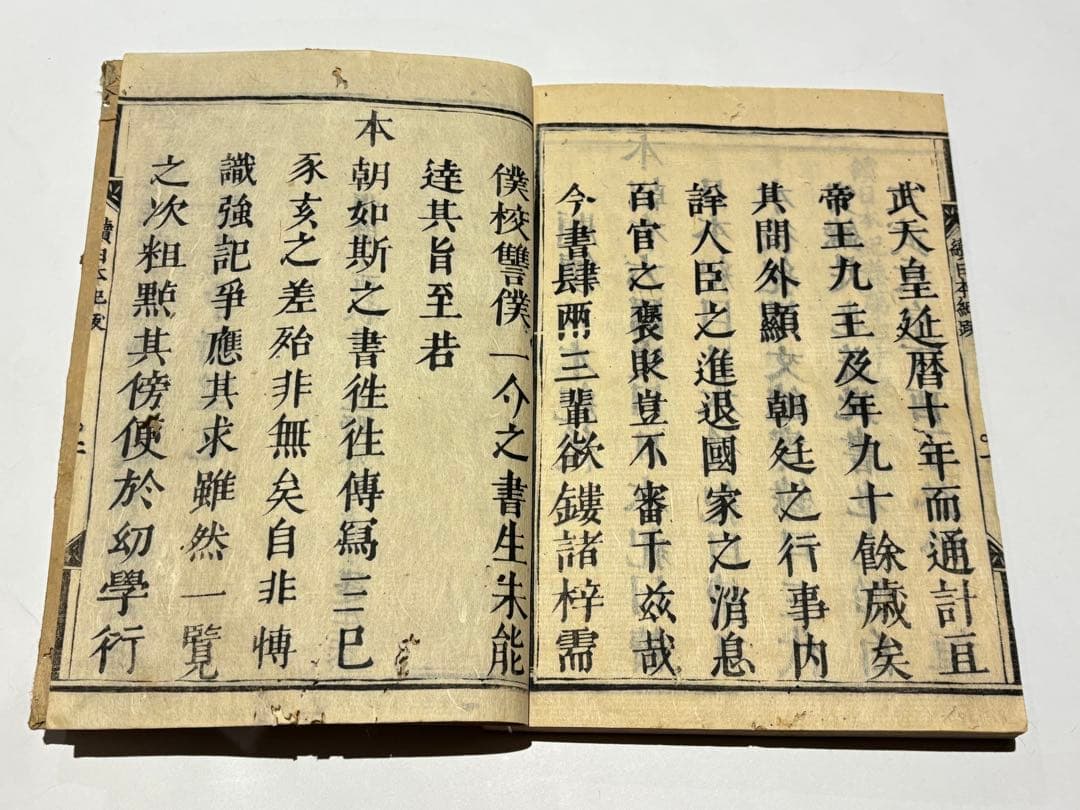 續日本紀跋
武天皇延暦十年而通計亘
帝王九主及年九十餘歳矣
其間外顯朝廷之行事内
詮人臣之進退國家之消息
百官之褒貶豈不審于茲哉
今書肆兩三輩欲鏤諸梓需
僕校讐僕一介之書生未能
達其旨至若
本朝如斯之書徃徃傳寫三巳
豕亥之差殆非無矣自非愽
識強記爭應其求雖然一覽
之次粗點其傍便於幼學衍
續日本紀跋